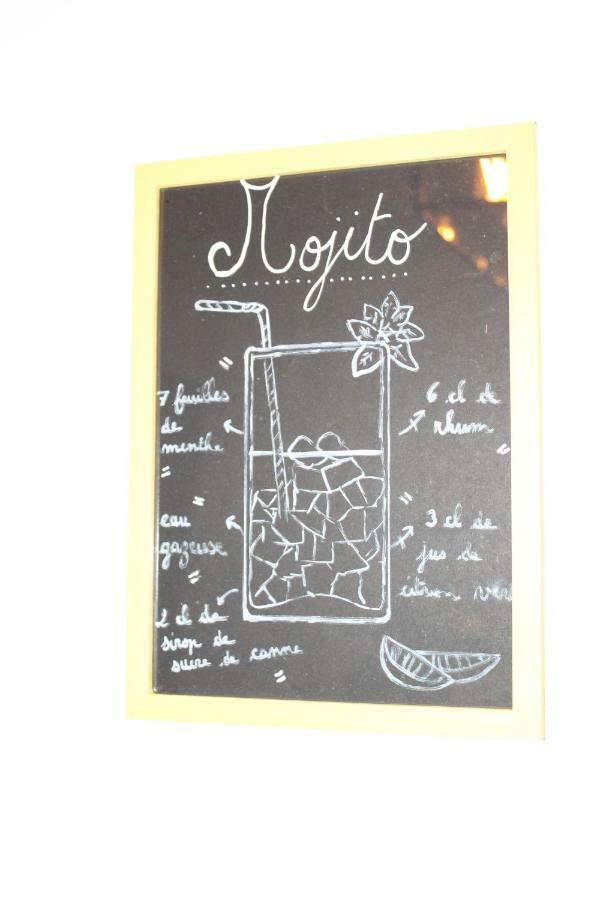 Mojito
7 feuilles
de
menthe
eau
gazeuse
2 cl de
sirop de
sucre de canne
6 cl de
rhum
3 cl de
jus de
citron vert